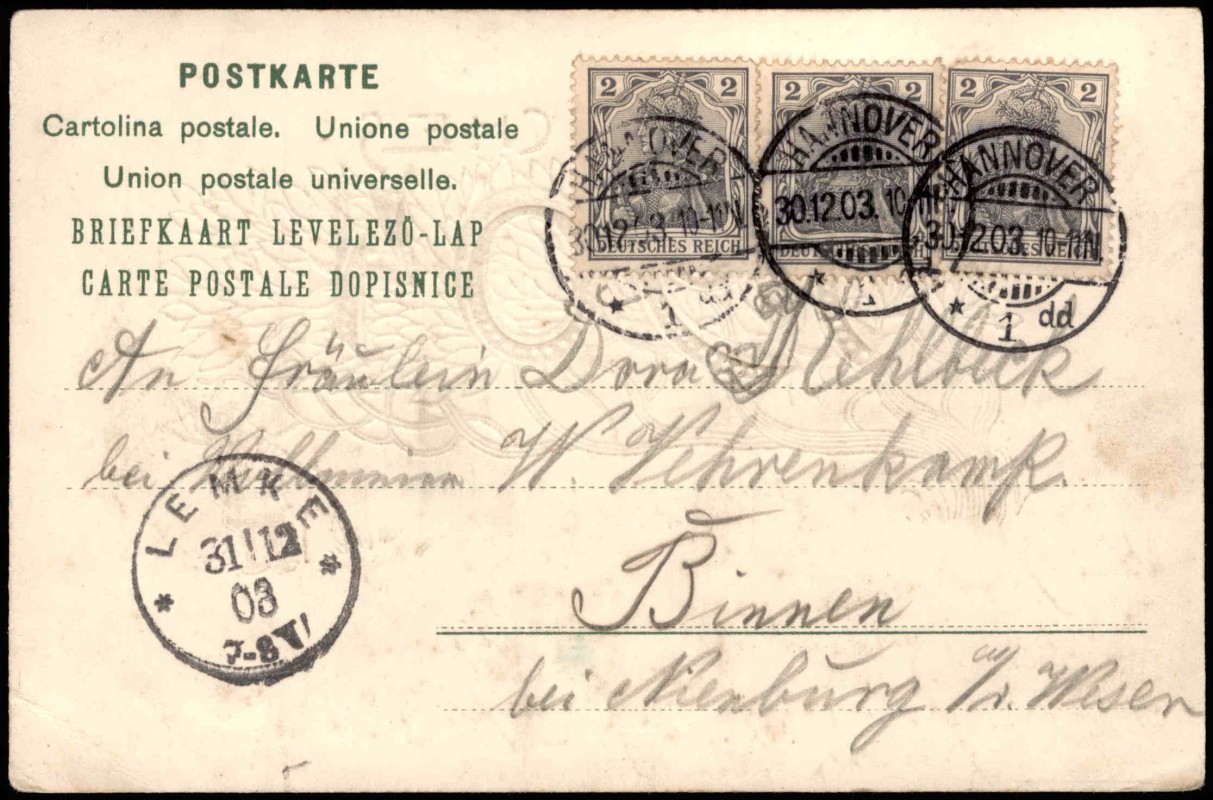 POSTKARTE
Cartolina postale. Unione postale
Union postale universelle.
BRIEFKAART LEVELEZÖ-LAP
CARTE POSTALE DOPISNICE
2 2
DEUTSCHES REICH
2 2
2 2
HANNOVER
30.12.03. 10-11N
* 1
HANNOVER
30.12.03. 10-11N
* 1
HANNOVER
30.12.03. 10-11N
* 1 dd
An Fräulein Dora
bei W. Vehrenkamp.
Binnen
bei Nienburg a/d. Weser
LEMKE
31/12
03
7-8 V